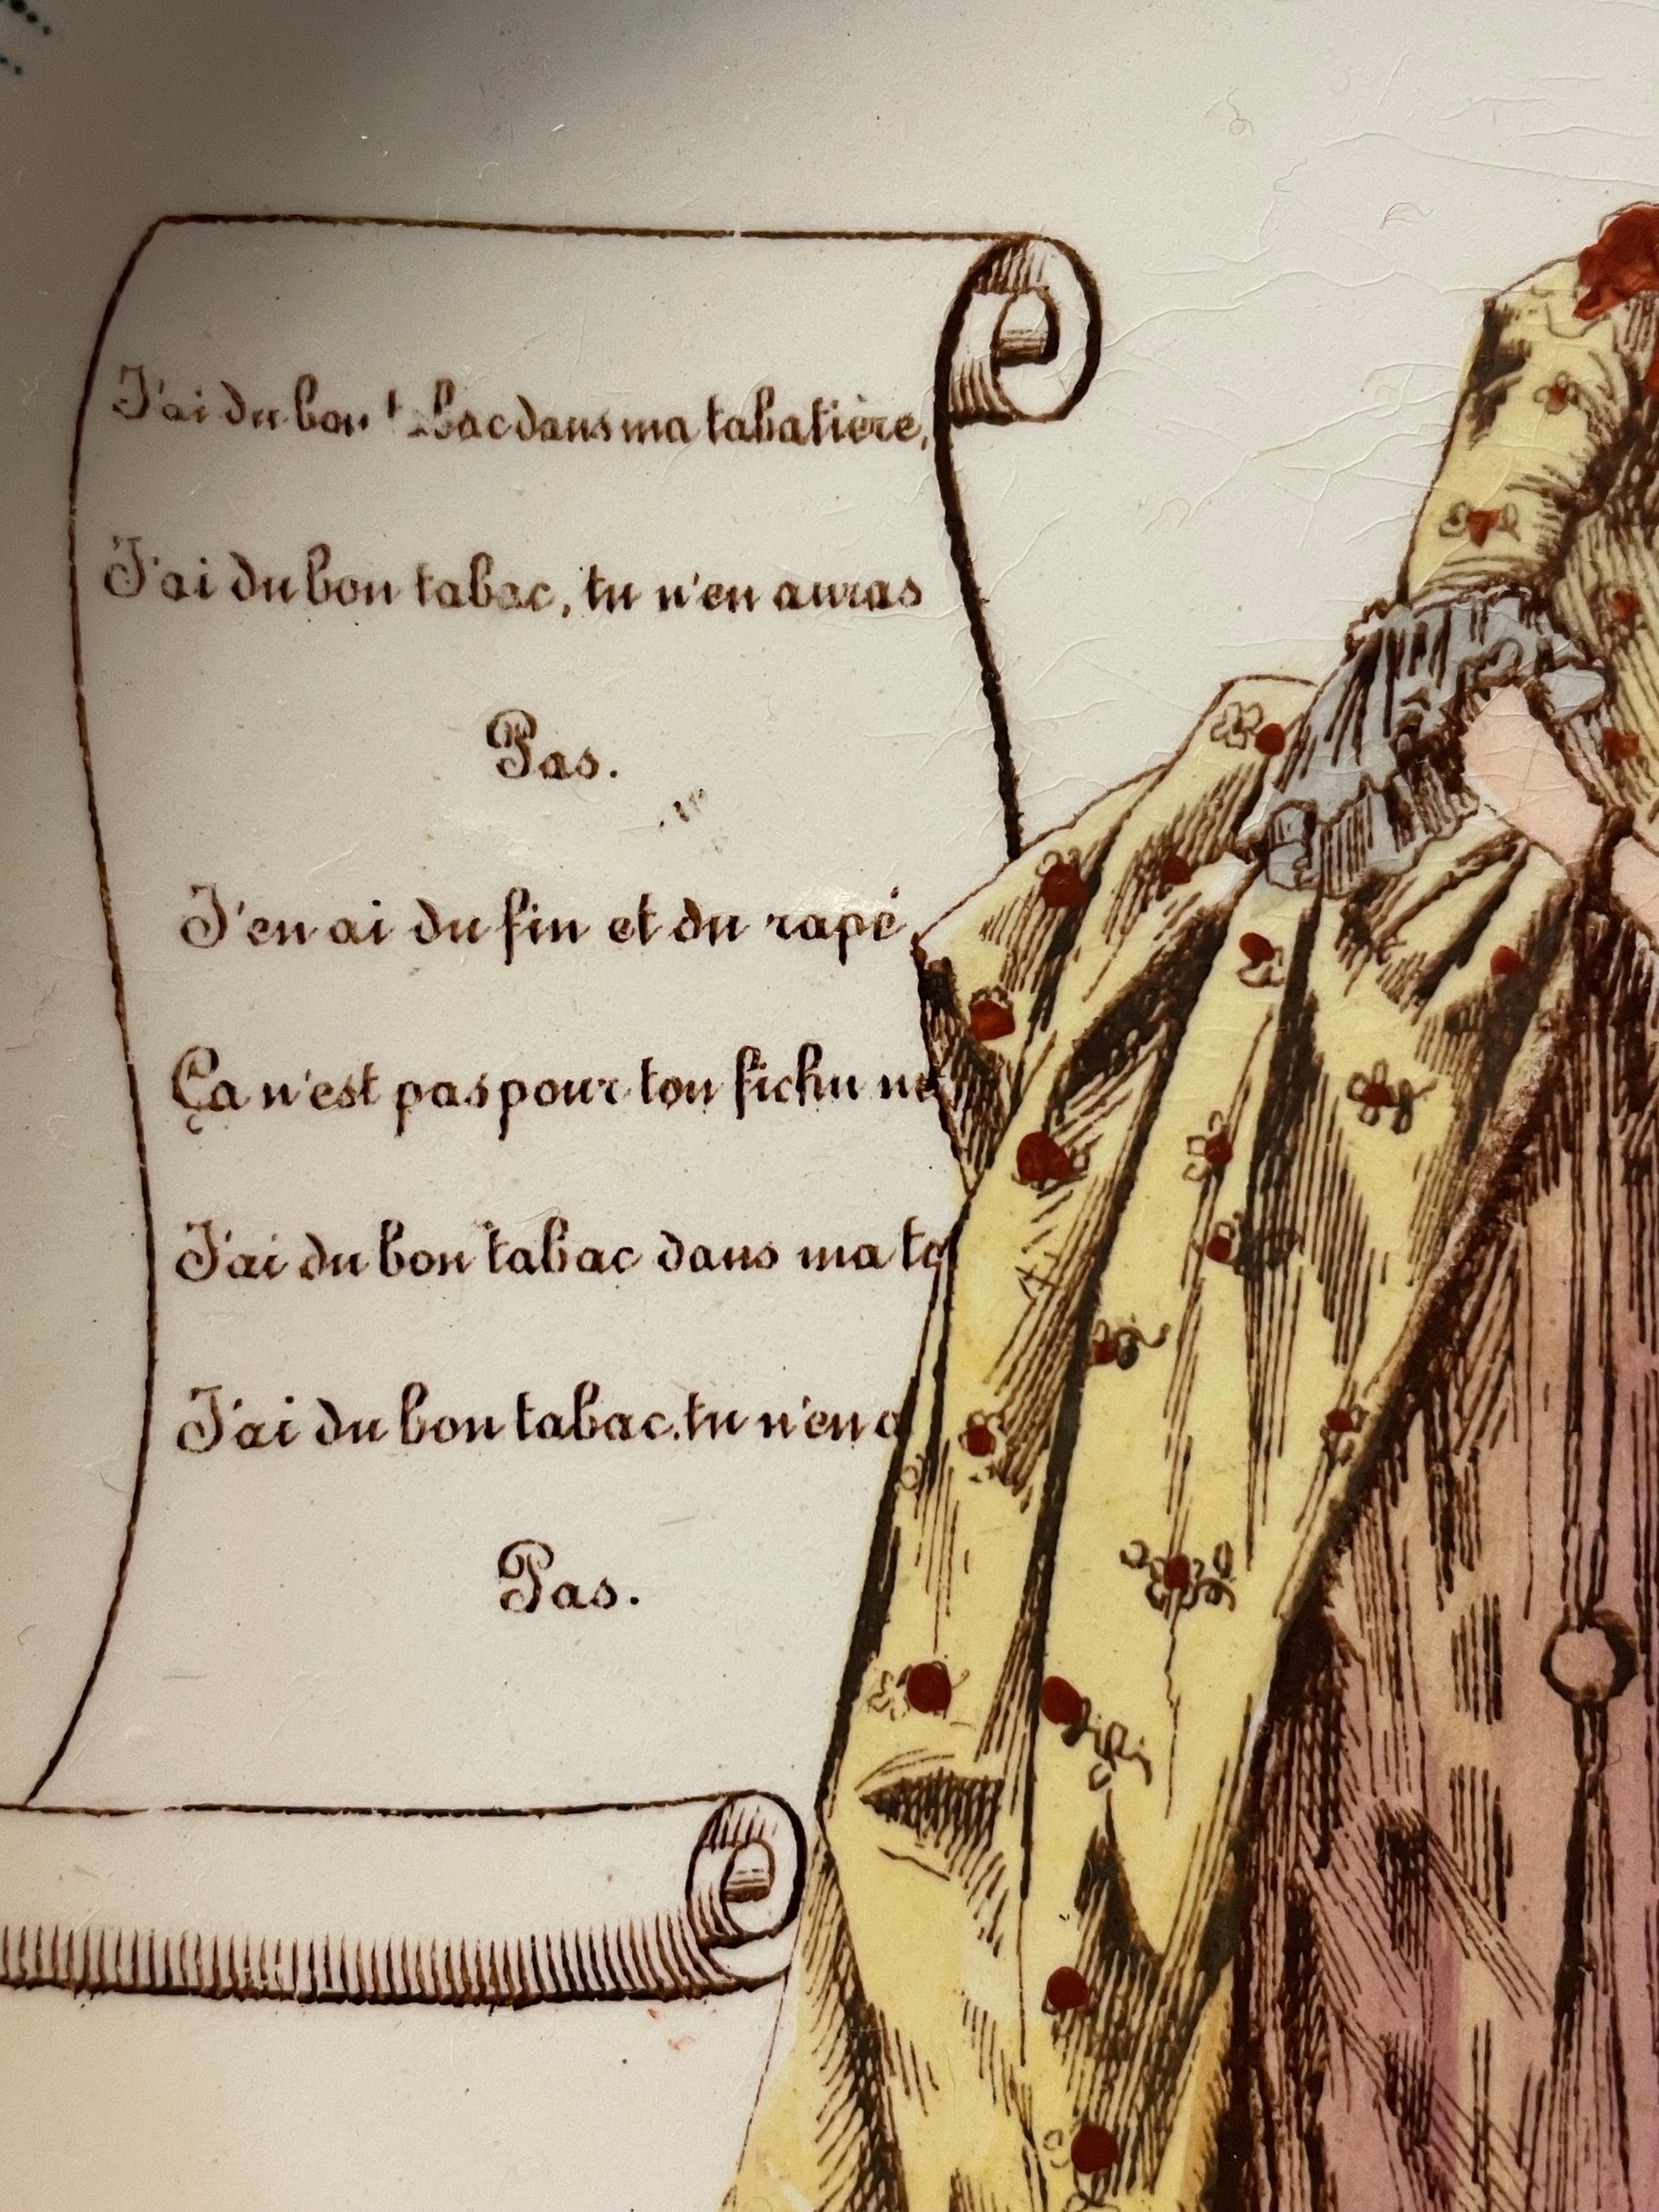 J'ai du bon tabac dans ma tabatière,
J'ai du bon tabac, tu n'en auras
Pas.
J'en ai du fin et du rapé
Ça n'est pas pour ton fichu
J'ai du bon tabac dans ma
J'ai du bon tabac, tu n'en
Pas.